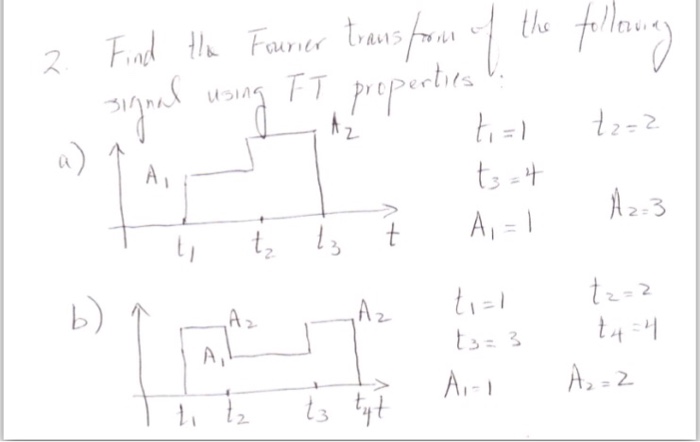 2. Find the Fourier transform of the following
signal using FT properties:
a)
A2
A1
t1 t2 t3 t
t1=1 t2=2
t3=4
A1=1 A2=3
b)
A2 A2
A1
t1 t2 t3 t4 t
t1=1 t2=2
t3=3 t4=4
A1=1 A2=2